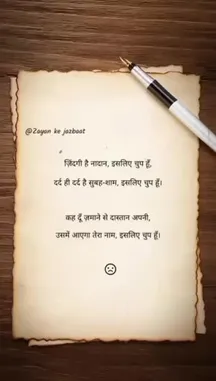 @Zayan ke jazbaat
ज़िंदगी है नादान, इसलिए चुप हूँ,
दर्द ही दर्द है सुबह-शाम, इसलिए चुप हूँ।
कह दूँ ज़माने से दास्तान अपनी,
उसमें आएगा तेरा नाम, इसलिए चुप हूँ।